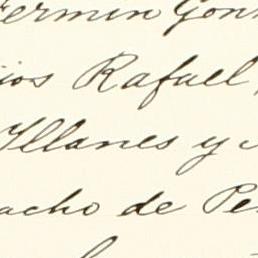 Fermin Gon
ijos Rafael
Illanes y
acho de Pe